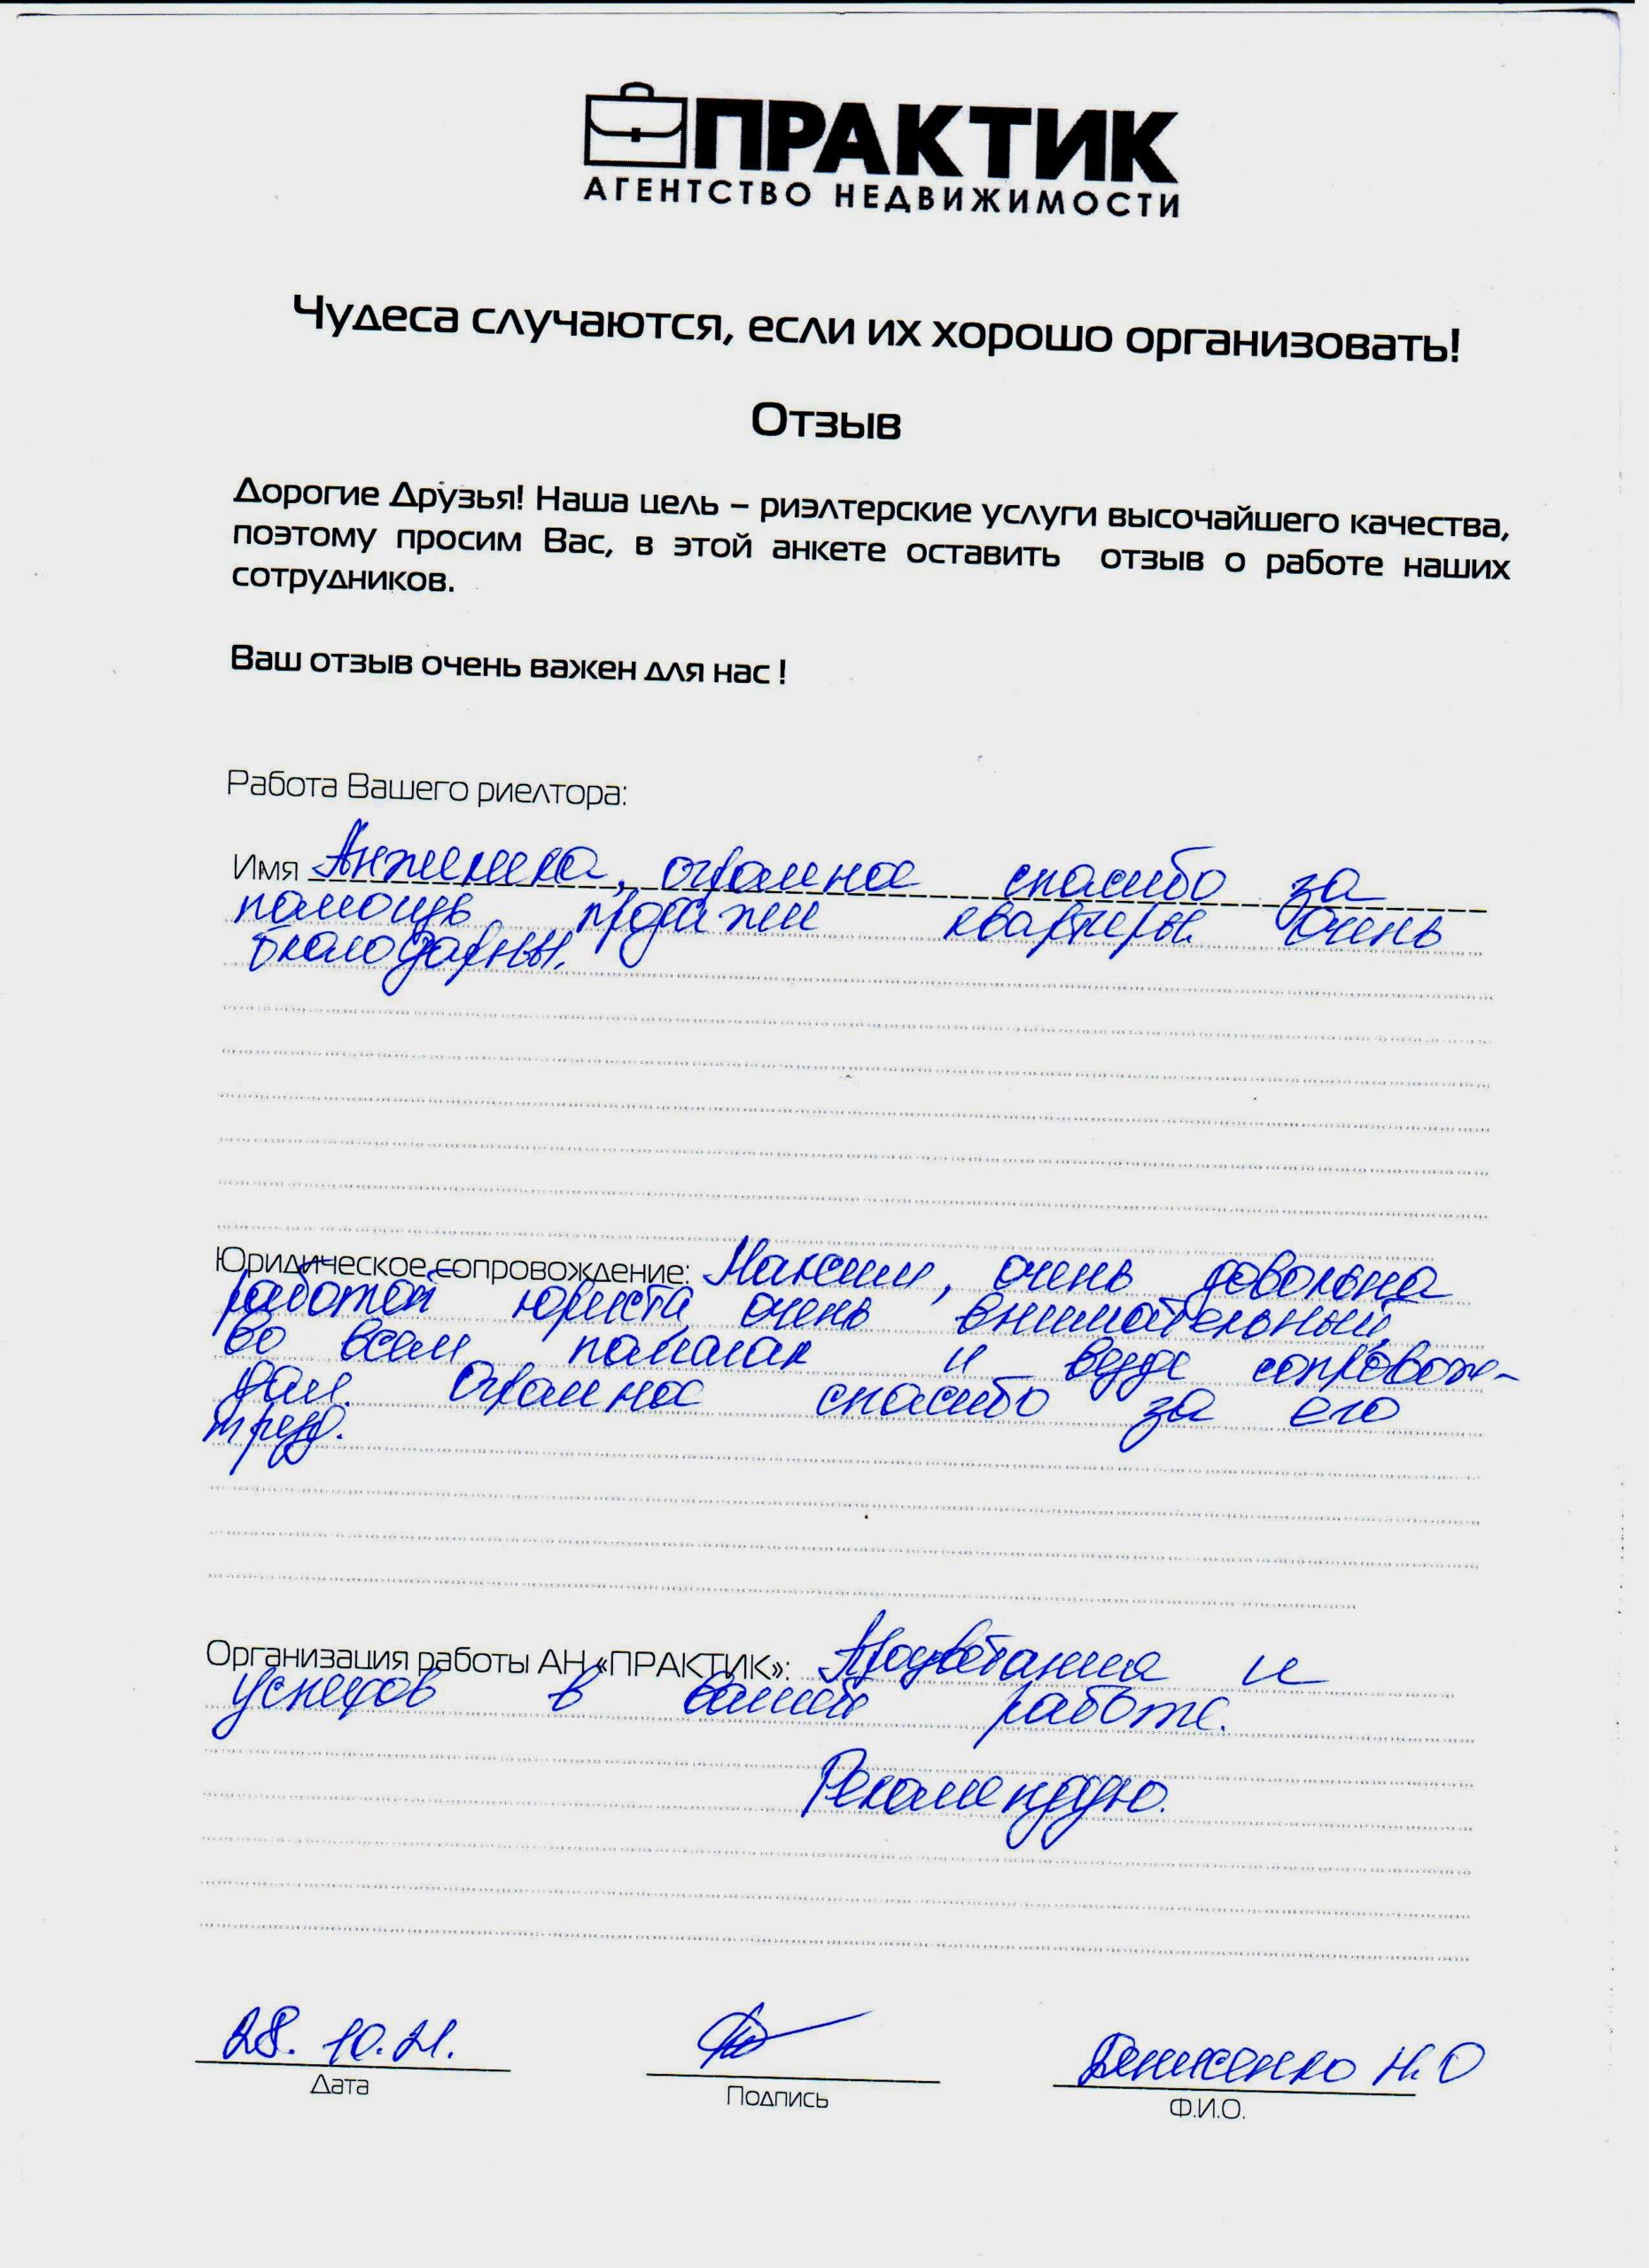 ПРАКТИК
АГЕНТСТВО НЕДВИЖИМОСТИ
Чудеса случаются, если их хорошо организовать!
Отзыв
Дорогие Друзья! Наша цель – риэлтерские услуги высочайшего качества,
поэтому просим Вас, в этой анкете оставить отзыв о работе наших
сотрудников.
Ваш отзыв очень важен для нас !
Работа Вашего риелтора:
Имя Анжелика, огромное спасибо за
помощь продажи квартиры. Очень
благодарны.
Юридическое сопровождение: Максим, очень довольна
работой юриста, очень внимательный,
во всем помогал и везде сопровож-
дал. Огромное спасибо за его
труд.
Организация работы АН «ПРАКТИК»: Процветания и
успехов в вашей работе.
Рекомендую.
28. 10. 21.
Дата
Подпись
Денисенко Н.О
Ф.И.О.